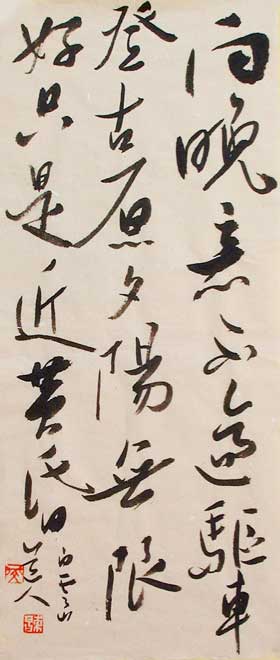 向晚意不適驅車
登古原夕陽無限
好只是近黃昏
白云山
道人